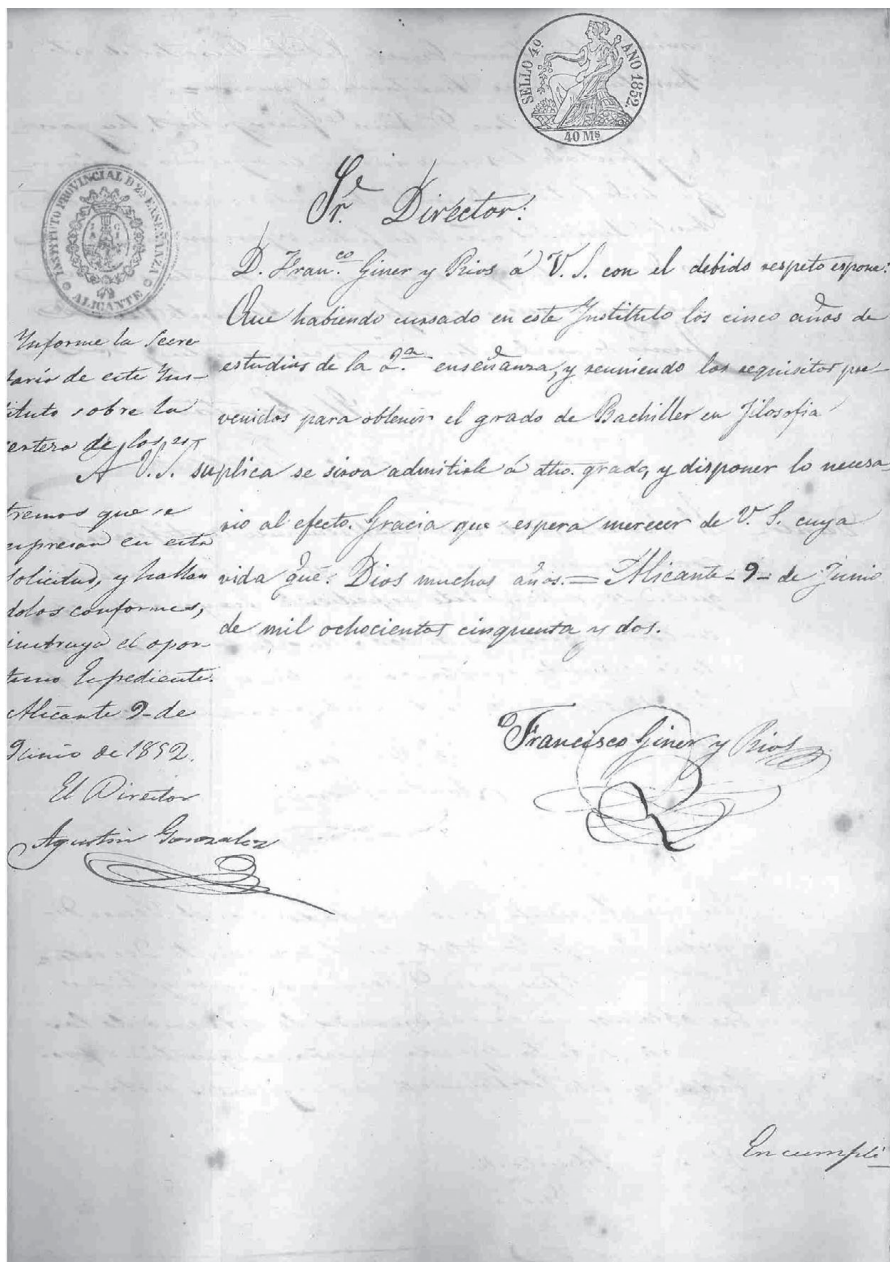 SELLO 4º AÑO 1852.
40 Ms
INSTITUTO PROVINCIAL DE 2ª ENSEÑANZA
ALICANTE
Sr. Director.
D. Franco. Giner y Rios á V. S. con el debido respeto espone:
Que habiendo cursado en este Instituto los cinco años de
estudios de la 2.a enseñanza, y reuniendo los requisitos pre-
venidos para obtener el grado de Bachiller en Filosofia
A V. S. suplica se sirva admitirle á dho. grado, y disponer lo necesa-
rio al efecto. Gracia que espera merecer de V. S. cuya
vida gue. Dios muchos años. = Alicante - 9 - de Junio
de mil ochocientos cinquenta y dos.
Francisco Giner y Rios
Informe la Secre
taría de este Ins-
tituto sobre la
certeza de los es-
tremos que se
espresan en esta
solicitud, y hallan
dolos conformes,
instruya el opor-
tuno Expediente.
Alicante 9 de
Junio de 1852.
El Director
Agustin Gonzalez
En cumpli